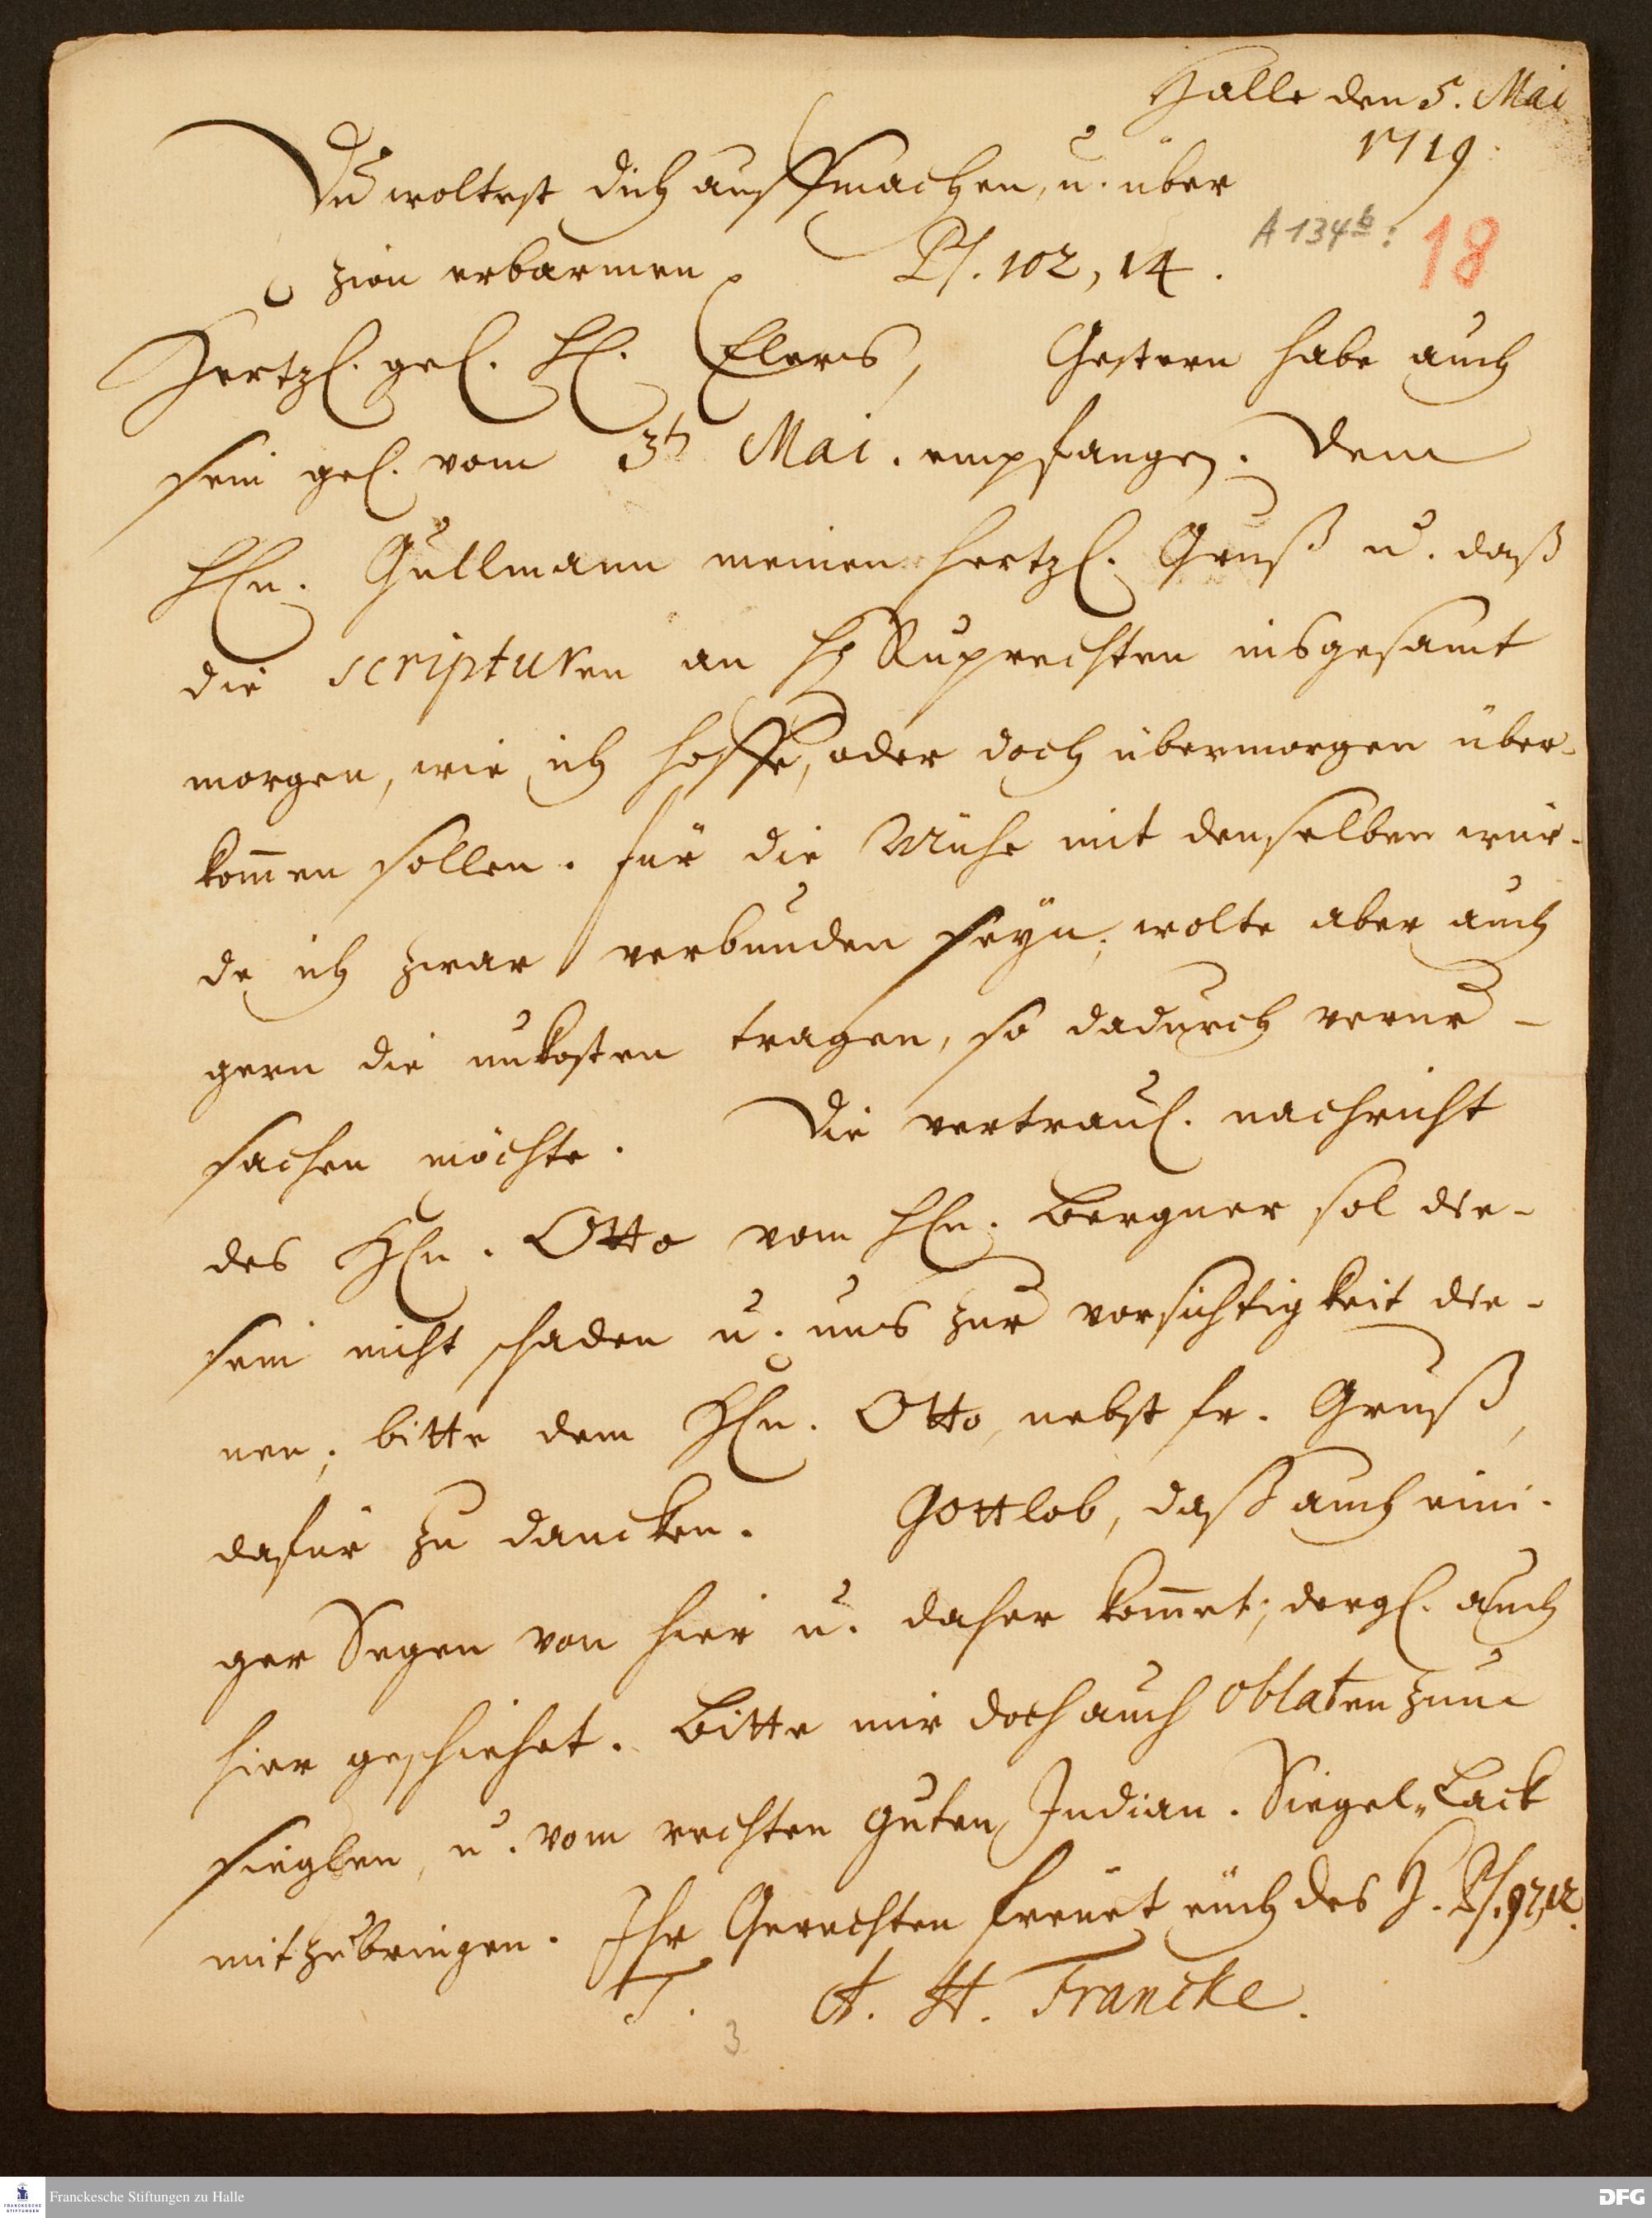 Halle den 5. Mai
1719.
Du woltest dich auffmachen, u. über
Zion erbarmen. Ps. 102, 14.
A 134b: 18
Hertzl. gel. H. Elers, Gestern habe auch
sein gel. vom 3t Mai. empfangen. Dem
Hn. Gullmann meinen hertzl. Gruß u. daß
die scripturen an H Ruprechten insgesamt
morgen, wie ich hoffe, oder doch übermorgen über-
kom̅en sollen. für die Mühe mit denselben wür-
de ich zwar verbunden seyn, wolte aber auch
gern die unkosten tragen, so dadurch verur-
sachen möchte. Die vertraul. nachricht
des Hn. Otto vom Hn. Bergner sol die-
sem nicht schaden u. uns zur vorsichtigkeit die-
nen; bitte dem Hn. Otto, nebst fr. Gruß,
dafür zu dancken. Gottlob, daß auch eini-
ger Segen von hier u. daher kom̅et; dergl. auch
hier geschiehet. Bitte mir doch auch oblaten zum
sieglen, u. vom rechten guten Indian. Siegel-Lack
mitzubringen. Ihr Gerechten freuet euch des H. Ps. 97,12.
T. A. H. Francke.
3
Franckesche Stiftungen zu Halle
DFG